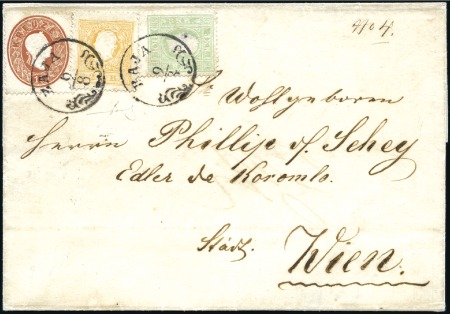 4104.
BAJA
9/8
BAJA
9/8
Sr Wohlgeboren
Herrn Phillip v. Schey
Edler de Koromla.
Stadt.
Wien.